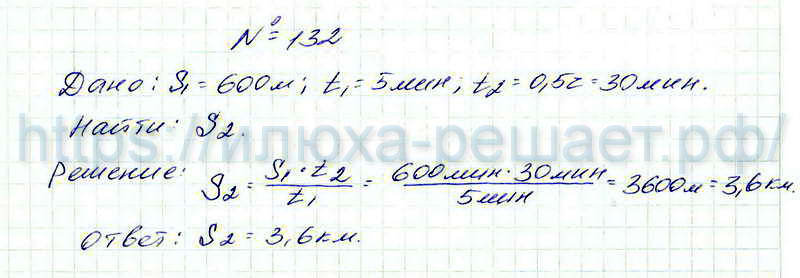 № 132
Дано: S₁ = 600м; t₁ = 5мин, t₂ = 0,5ч = 30мин.
Найти: S₂.
https://илюха-решает.рф/
Решение: S₂ = S₁ · t₂ / t₁ = 600мин · 30мин / 5мин = 3600м = 3,6км.
Ответ: S₂ = 3,6км.